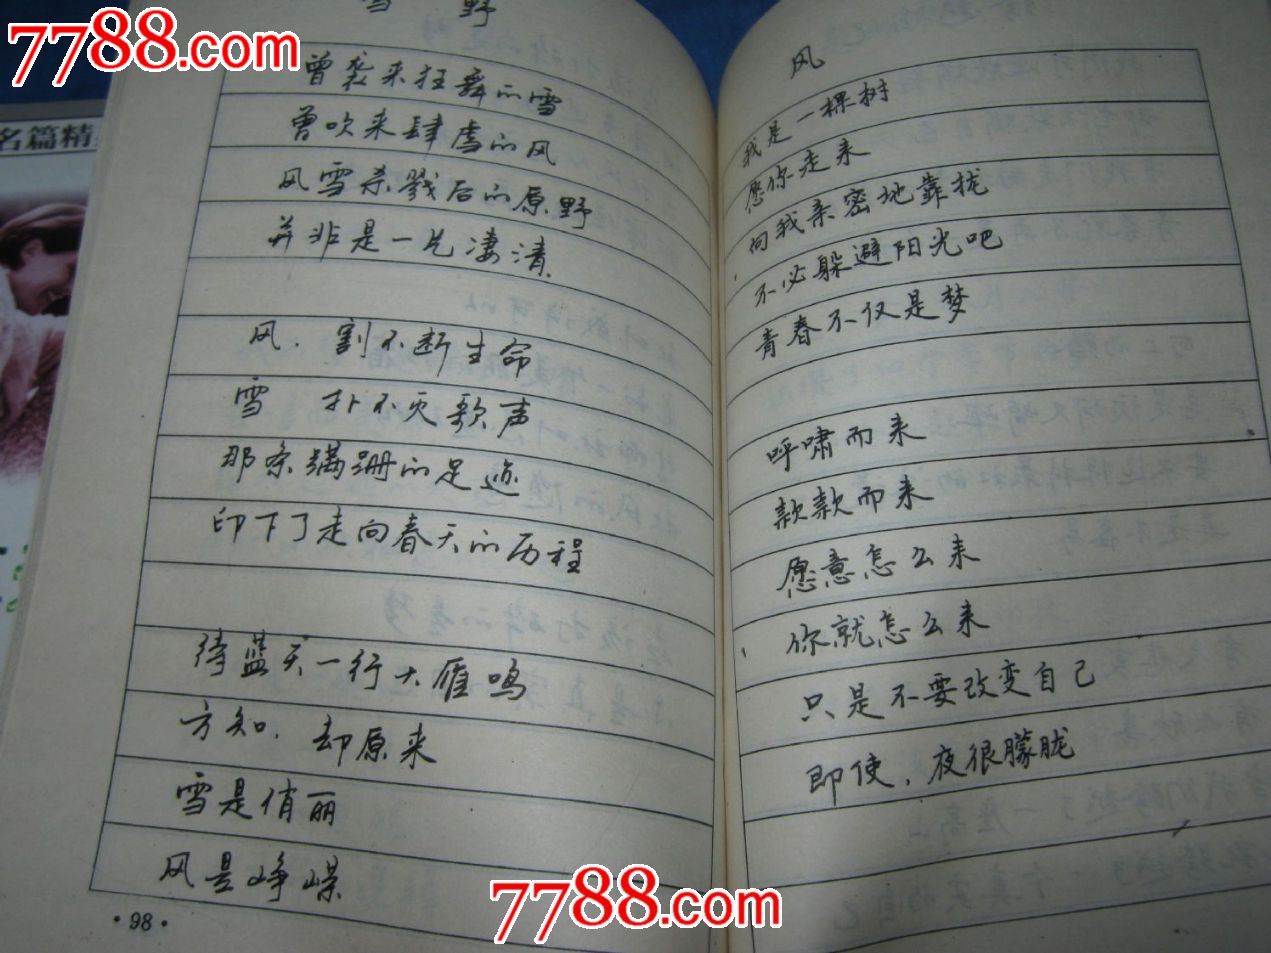 7788.com
名篇精
雪 野
曾袭来狂舞的雪
曾吹来肆虐的风
风雪杀戮后的原野
并非是一片凄清
风，割不断生命
雪 扑不灭歌声
那条蹒跚的足迹
印下了走向春天的历程
待蓝天一行大雁鸣
方知，却原来
雪是俏丽
风是峥嵘
·98·
风
我是一棵树
愿你走来
向我亲密地靠拢
不必躲避阳光吧
青春不仅是梦
呼啸而来
款款而来
愿意怎么来
你就怎么来
只是不要改变自己
即使，夜很朦胧
7788.com
7788.com